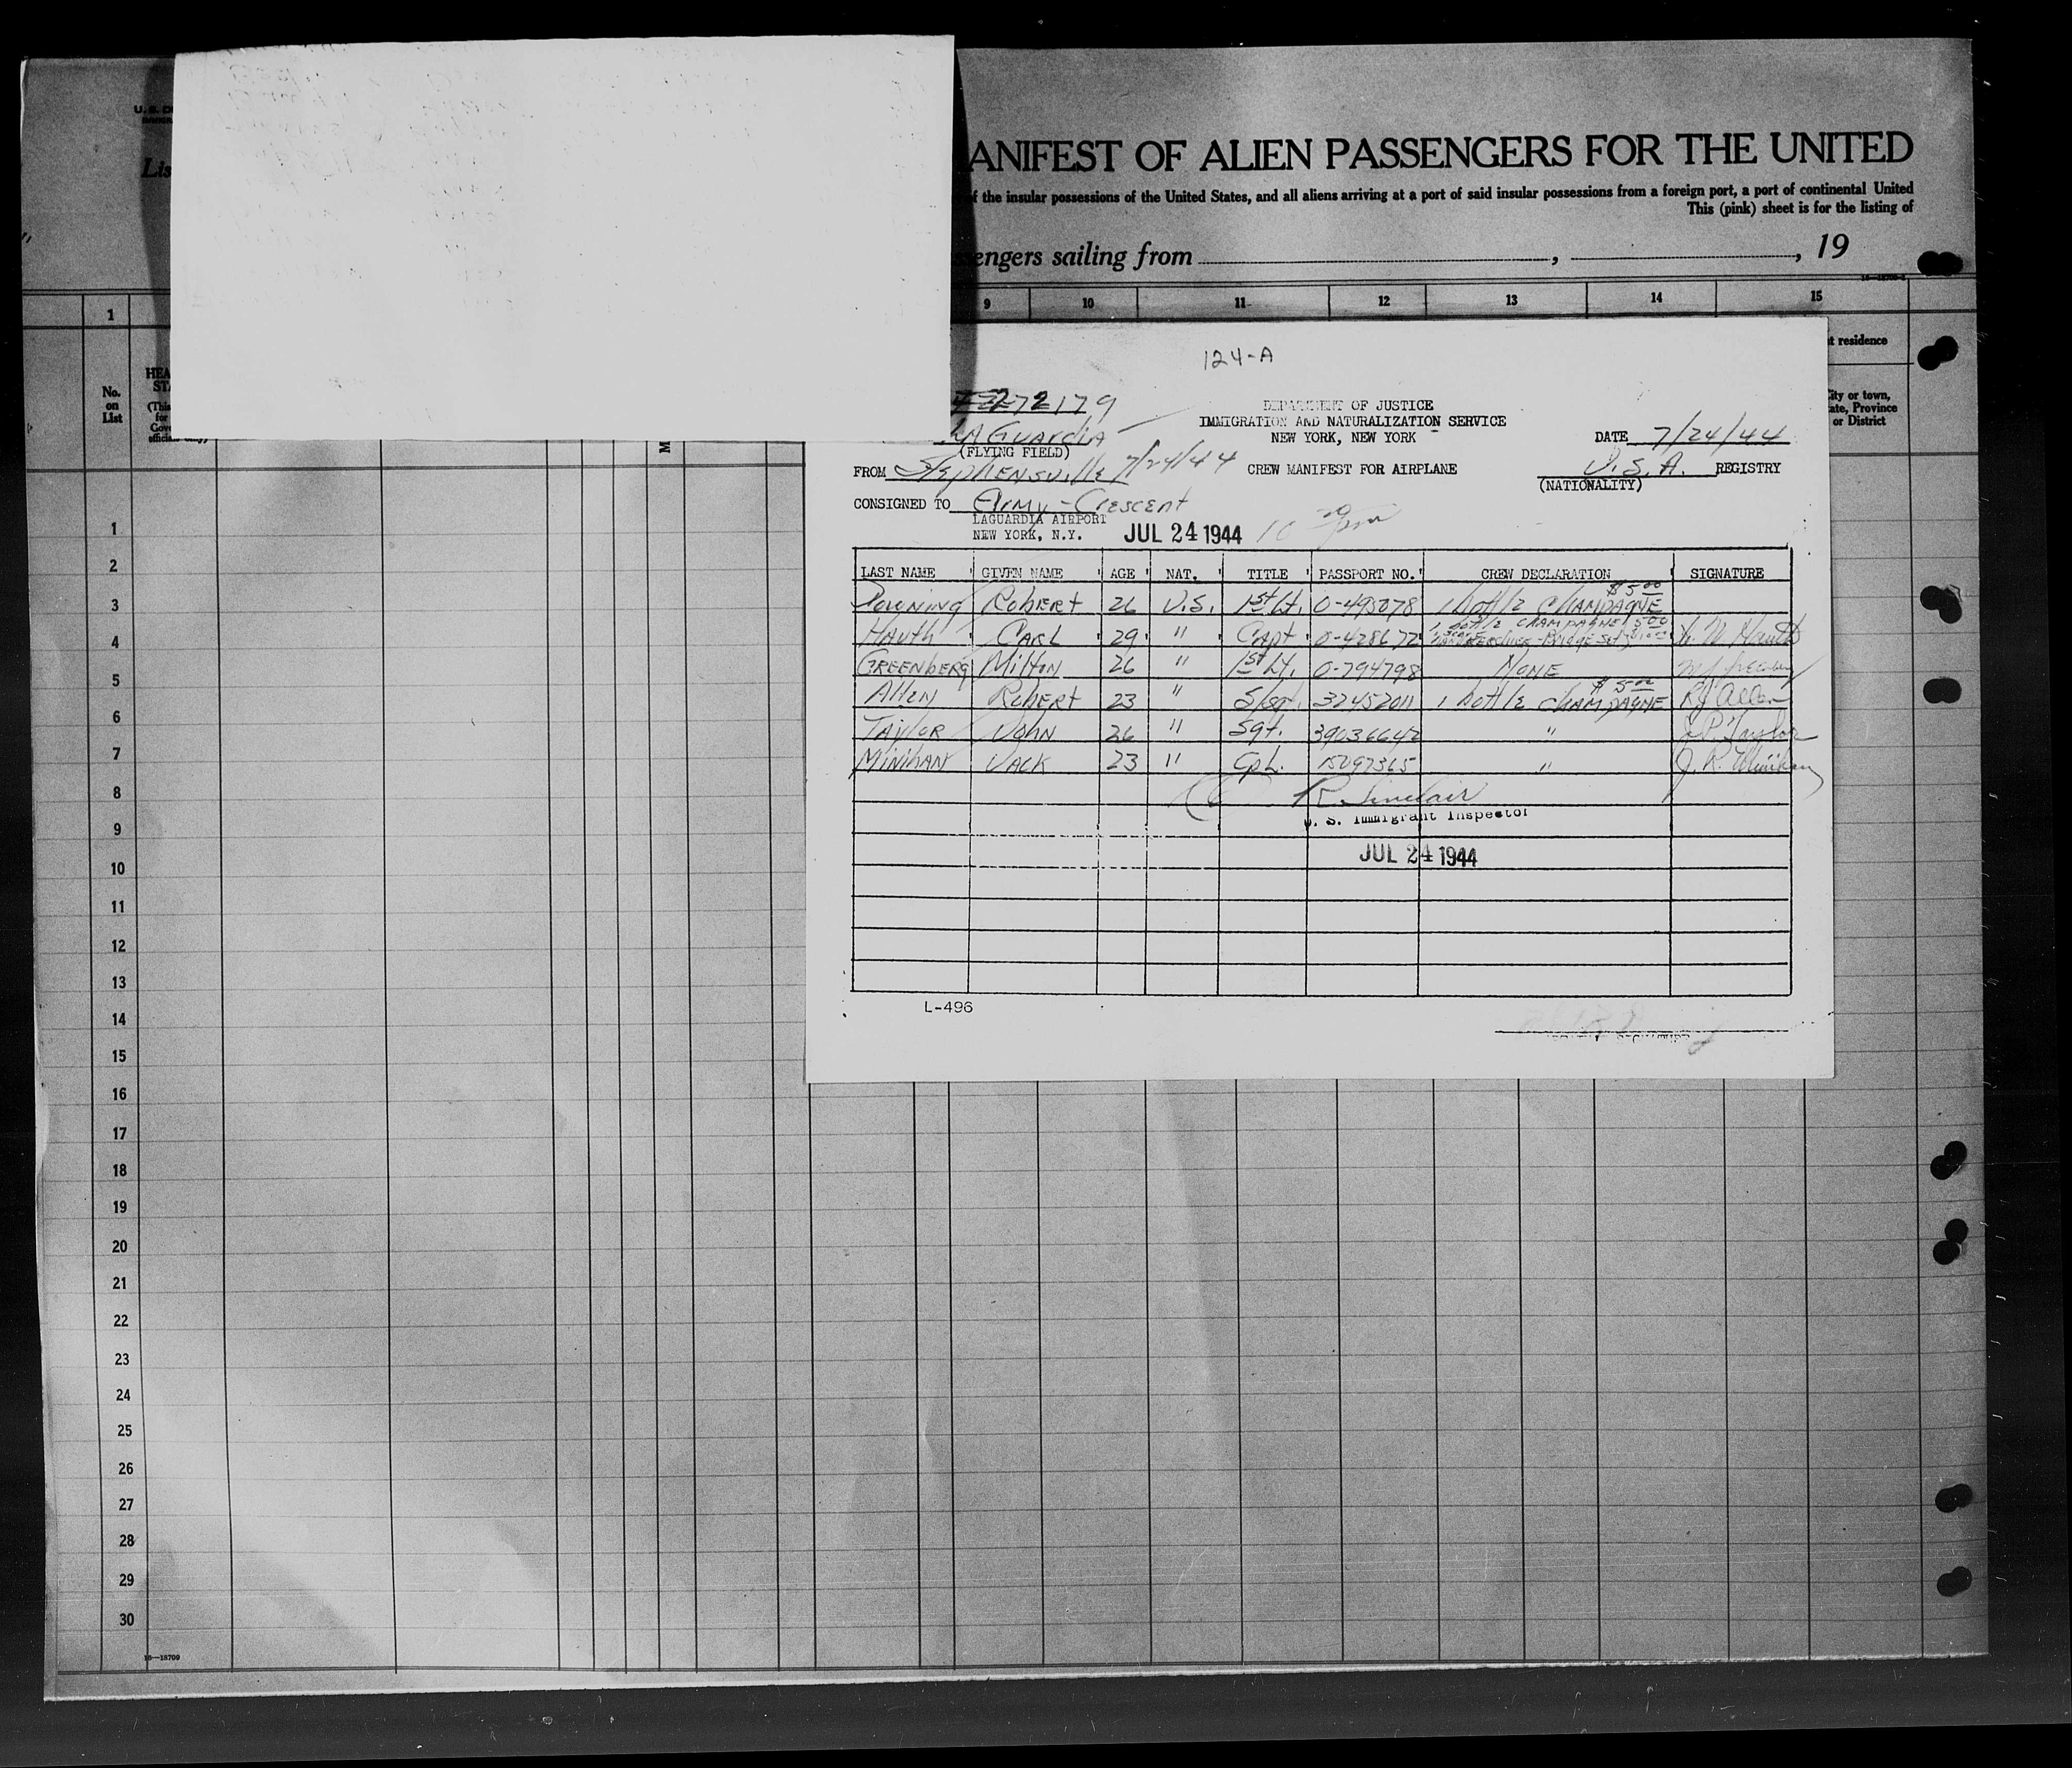 U. S. D
Lis
ANIFEST OF ALIEN PASSENGERS FOR THE UNITED
of the insular possessions of the United States, and all aliens arriving at a port of said insular possessions from a foreign port, a port of continental United
This (pink) sheet is for the listing of
engers sailing from , , 19
1 9 10 11 12 13 14 15
No. on List
HEA
ST
(This
for
Gov
t residence
City or town,
ate, Province
or District
124-A
72179
LA GUARDIA
(FLYING FIELD)
DEPARTMENT OF JUSTICE
IMMIGRATION AND NATURALIZATION SERVICE
NEW YORK, NEW YORK
DATE 7/24/44
FROM Stephensville 7/24/44 CREW MANIFEST FOR AIRPLANE U.S.A. REGISTRY
(NATIONALITY)
CONSIGNED TO Army - Crescent
LAGUARDIA AIRPORT
NEW YORK, N.Y. JUL 24 1944 10 pm
LAST NAME GIVEN NAME AGE NAT. TITLE PASSPORT NO. CREW DECLARATION SIGNATURE
Downing Robert 26 U.S. 1st Lt. O-495078 1 bottle CHAMPAGNE $5.00
Hauth Carl 29 " Capt O-428672 1 bottle CHAMPAGNE 5.00 Bridge Set
GREENBERG Milton 26 " 1st Lt. O-794798 NONE
Allen Robert 23 " S/Sgt. 32452011 1 bottle CHAMPAGNE $5.00 RJ Allen
TAYLOR John 26 " Sgt. 39036642 " J P Taylor
Minihan Jack 23 " Cpl. 15097365 " J. R. Minihan
R Sinclair
U. S. Immigrant Inspector
JUL 24 1944
L-496
1
2
3
4
5
6
7
8
9
10
11
12
13
14
15
16
17
18
19
20
21
22
23
24
25
26
27
28
29
30
16—18709